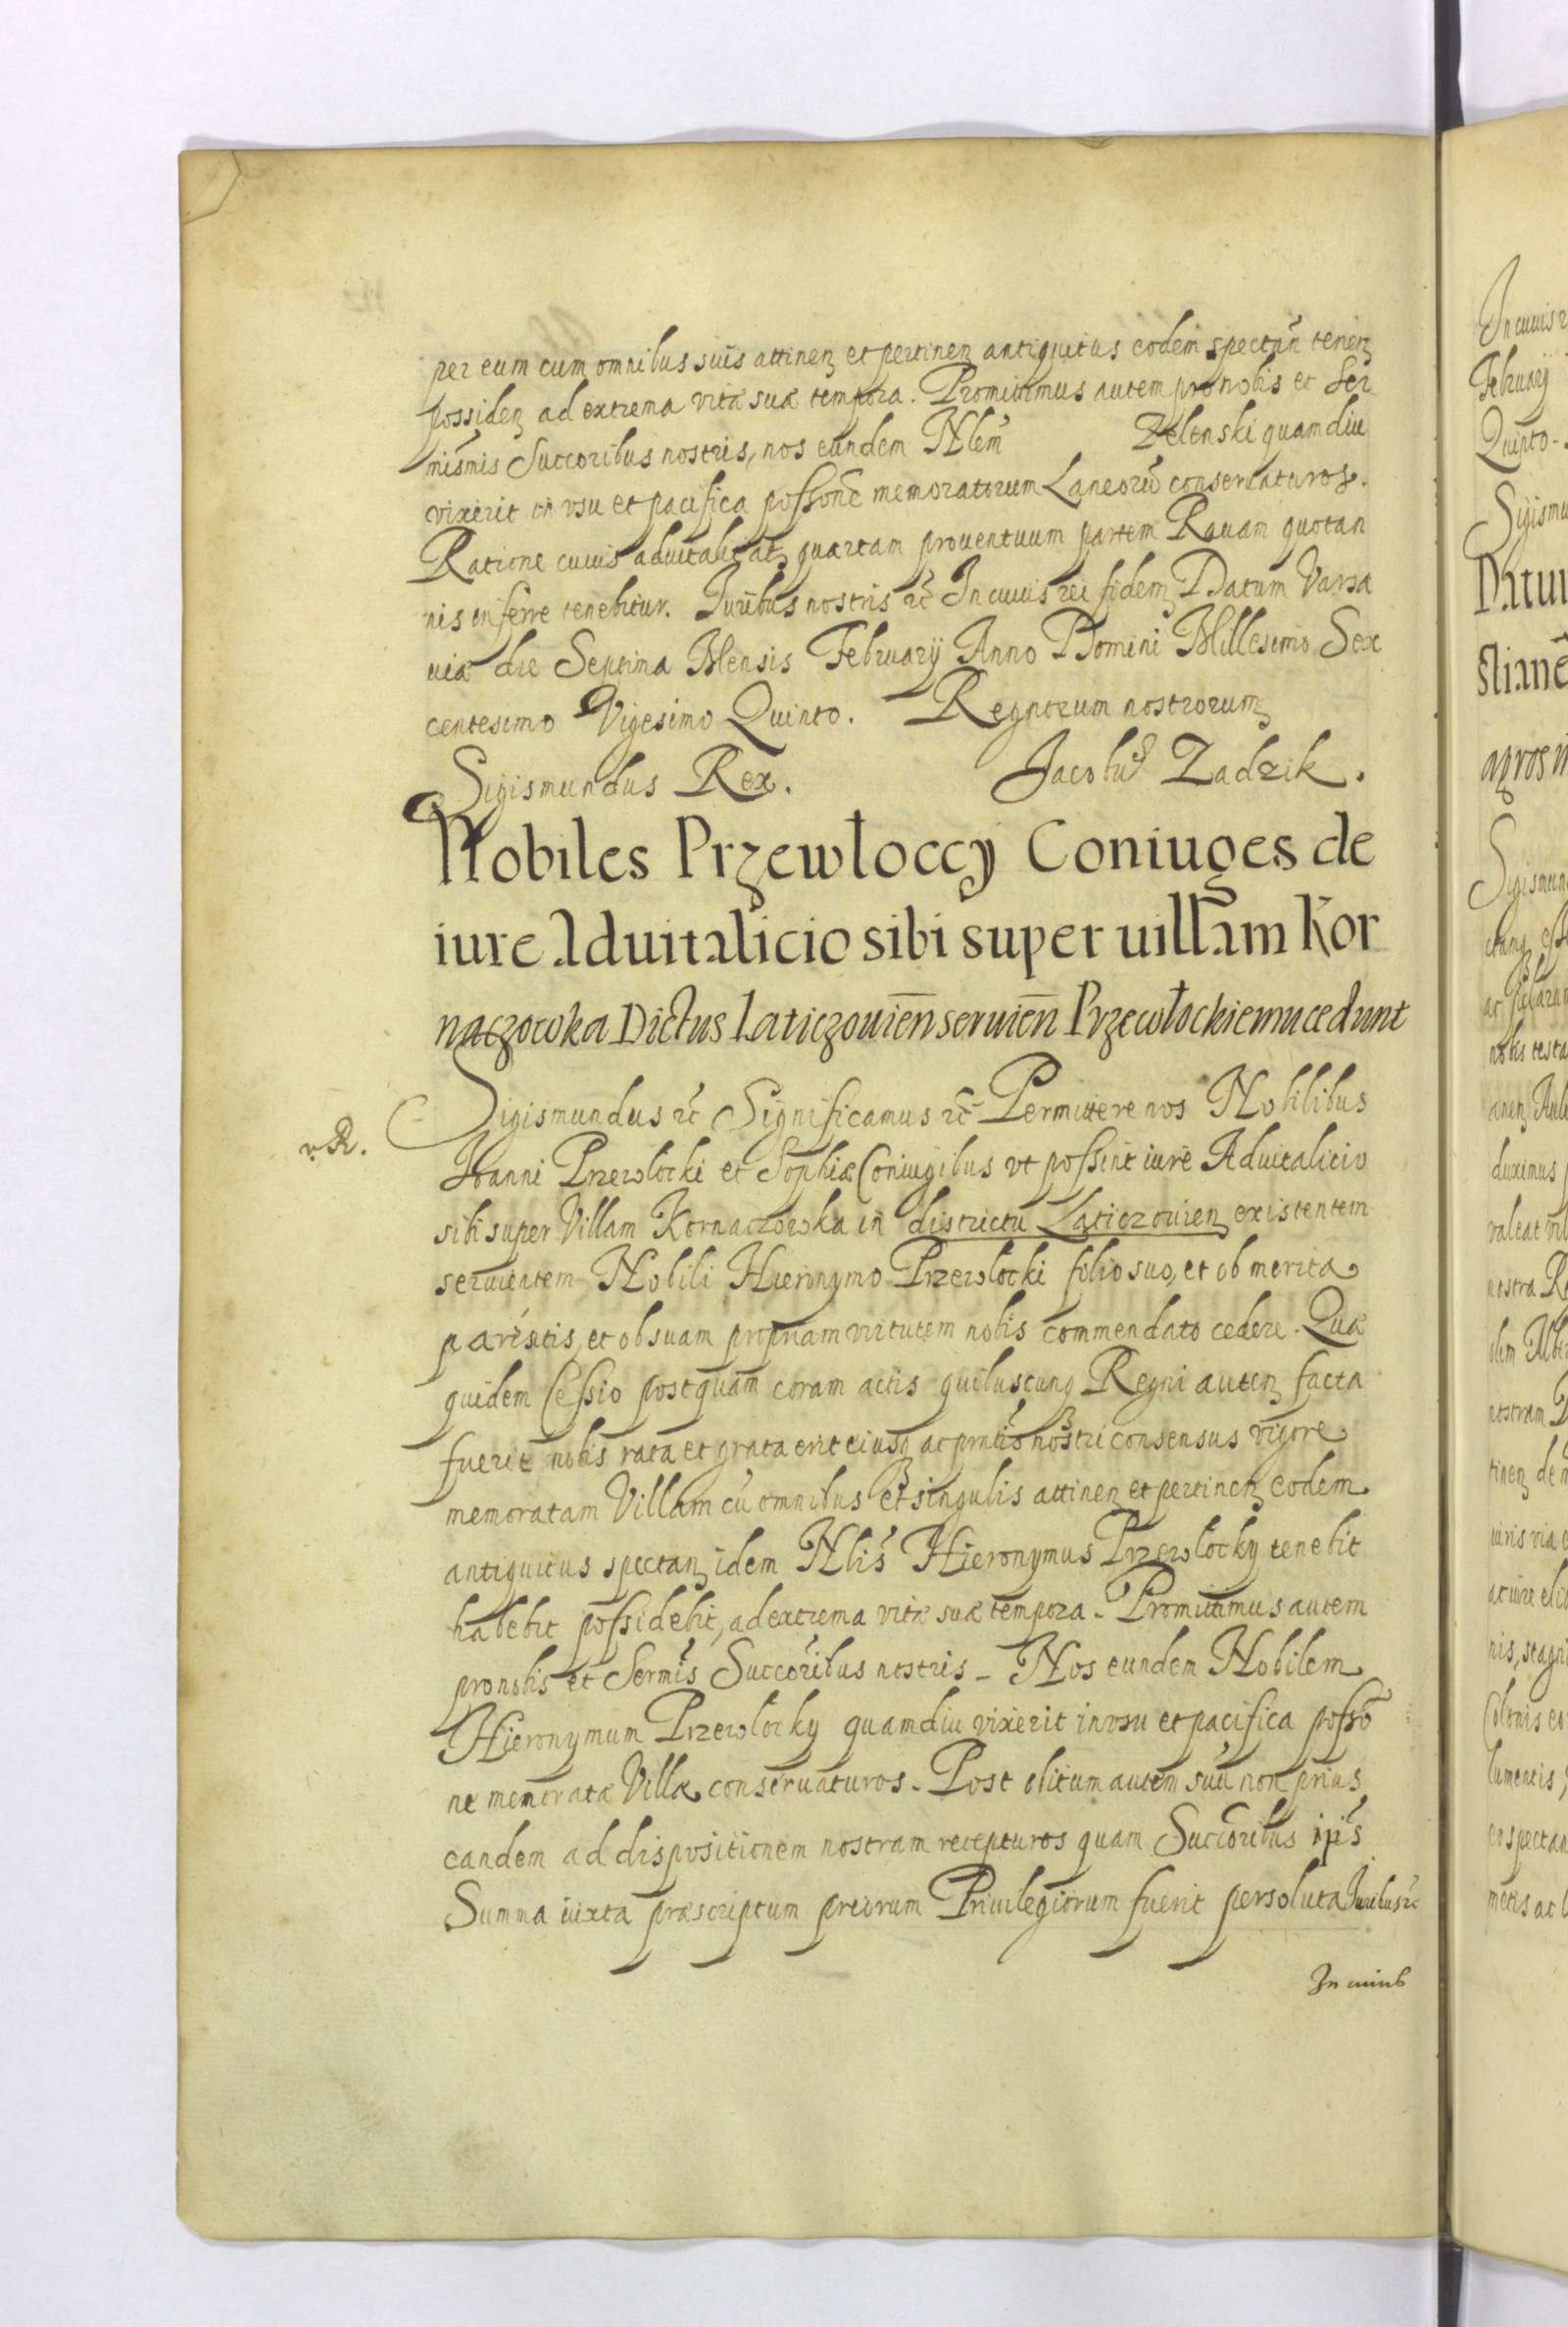 per eum cum omnibus suis attinen et pertinen antiquitus eodem spectan tenen
possiden ad extrema vitæ suæ tempora. Promittimus autem pro nobis et Ser
nismis Succoribus nostris, nos eundem Nlem Zelenski quamdiu
vixerit in vsu et pacifica possone memoratorum Laneorū conseruaturos.
Ratione cuius aduitalitatis quartam prouentuum partem Rauam quotan
nis inferre tenebitur. Juribus nostris etc In cuius rei fidem Datum Varsa
uiæ die Septima Mensis February Anno Domini Millesimo Sex
centesimo Vigesimo Quinto. Regnorum nostrorum
Sigismundus Rex. Jacobus Zadzik.
Nobiles Przewłoccy Coniuges de
iure Aduitalicio sibi super uillam Kor
naczowka Dictus Laticzouien seruien Przewłockiemu cedunt
Sigismundus etc Significamus etc Permittere nos Nobilibus
v. R.
Joanni Przewłocki et Sophiæ Coniugibus vt possint iure Aduitalicio
sibi super Villam Kornaczowka in districtu Laticzouien existentem
seruientem Nobili Hieronymo Przewłocki filio suo, et ob merita
parentis, et ob suam propriam virtutem nobis commendato cedere. Quæ
quidem Cessio postquam coram actis quibuscunq Regni auten facta
fuerit nobis rata et grata erit eiusq ac pntis nostri consensus vigore
memoratam Villam cū omnibus et singulis attinen et pertinen eodem
antiquitus spectan idem Nblis Hieronymus Przewłocky tenebit
habebit possidebit, ad extrema vitæ suæ tempora. Promittimus autem
pro nobis et Sermis Succoribus nostris _ Nos eundem Nobilem
Hieronymum Przewłocky quamdiu vixerit in vsu et pacifica posso
ne memoratæ Villæ conseruaturos. Post obitum autem suū non prius
eandem ad dispositionem nostram recepturos quam Succoribus ipīs
Summa iuxta præscriptum priorum Priuilegiorum fuerit persoluta Juribus etc
In cuius